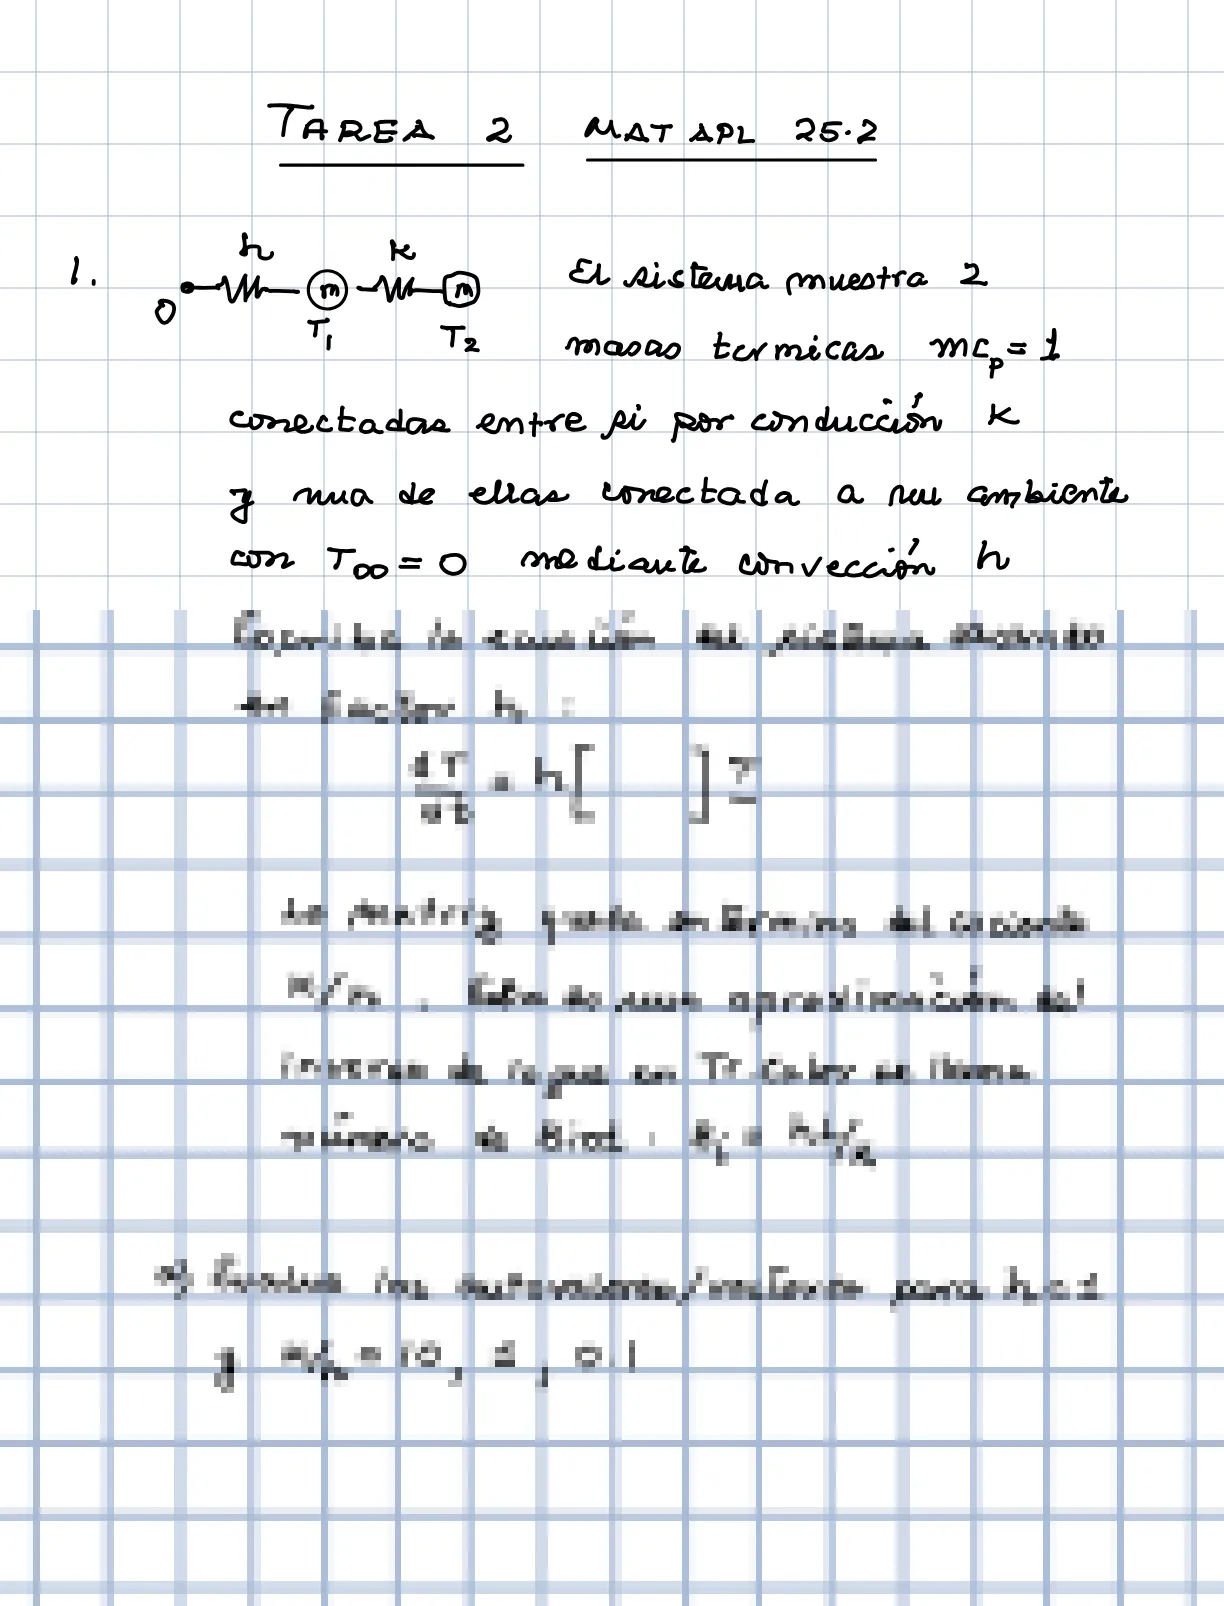 TAREA 2 MAT APL 25.2
1.
h k
m m
0 T1 T2
El sistema muestra 2
masas termicas mcp=1
conectadas entre si por conducción k
y una de ellas conectada a un ambiente
con T∞=0 mediante convección h
Escriba la ecuación del sistema sacando
en factor h :
dT/dt = h[ ] T
La matriz queda en término del cociente
k/h . Esto es una aproximación del
inverso de lo que en Tr. Calor se llama
número de Biot : Bi = hL/k
a) Evalue los autovalores/vectores para h=1
y k/h = 10, , 0.1